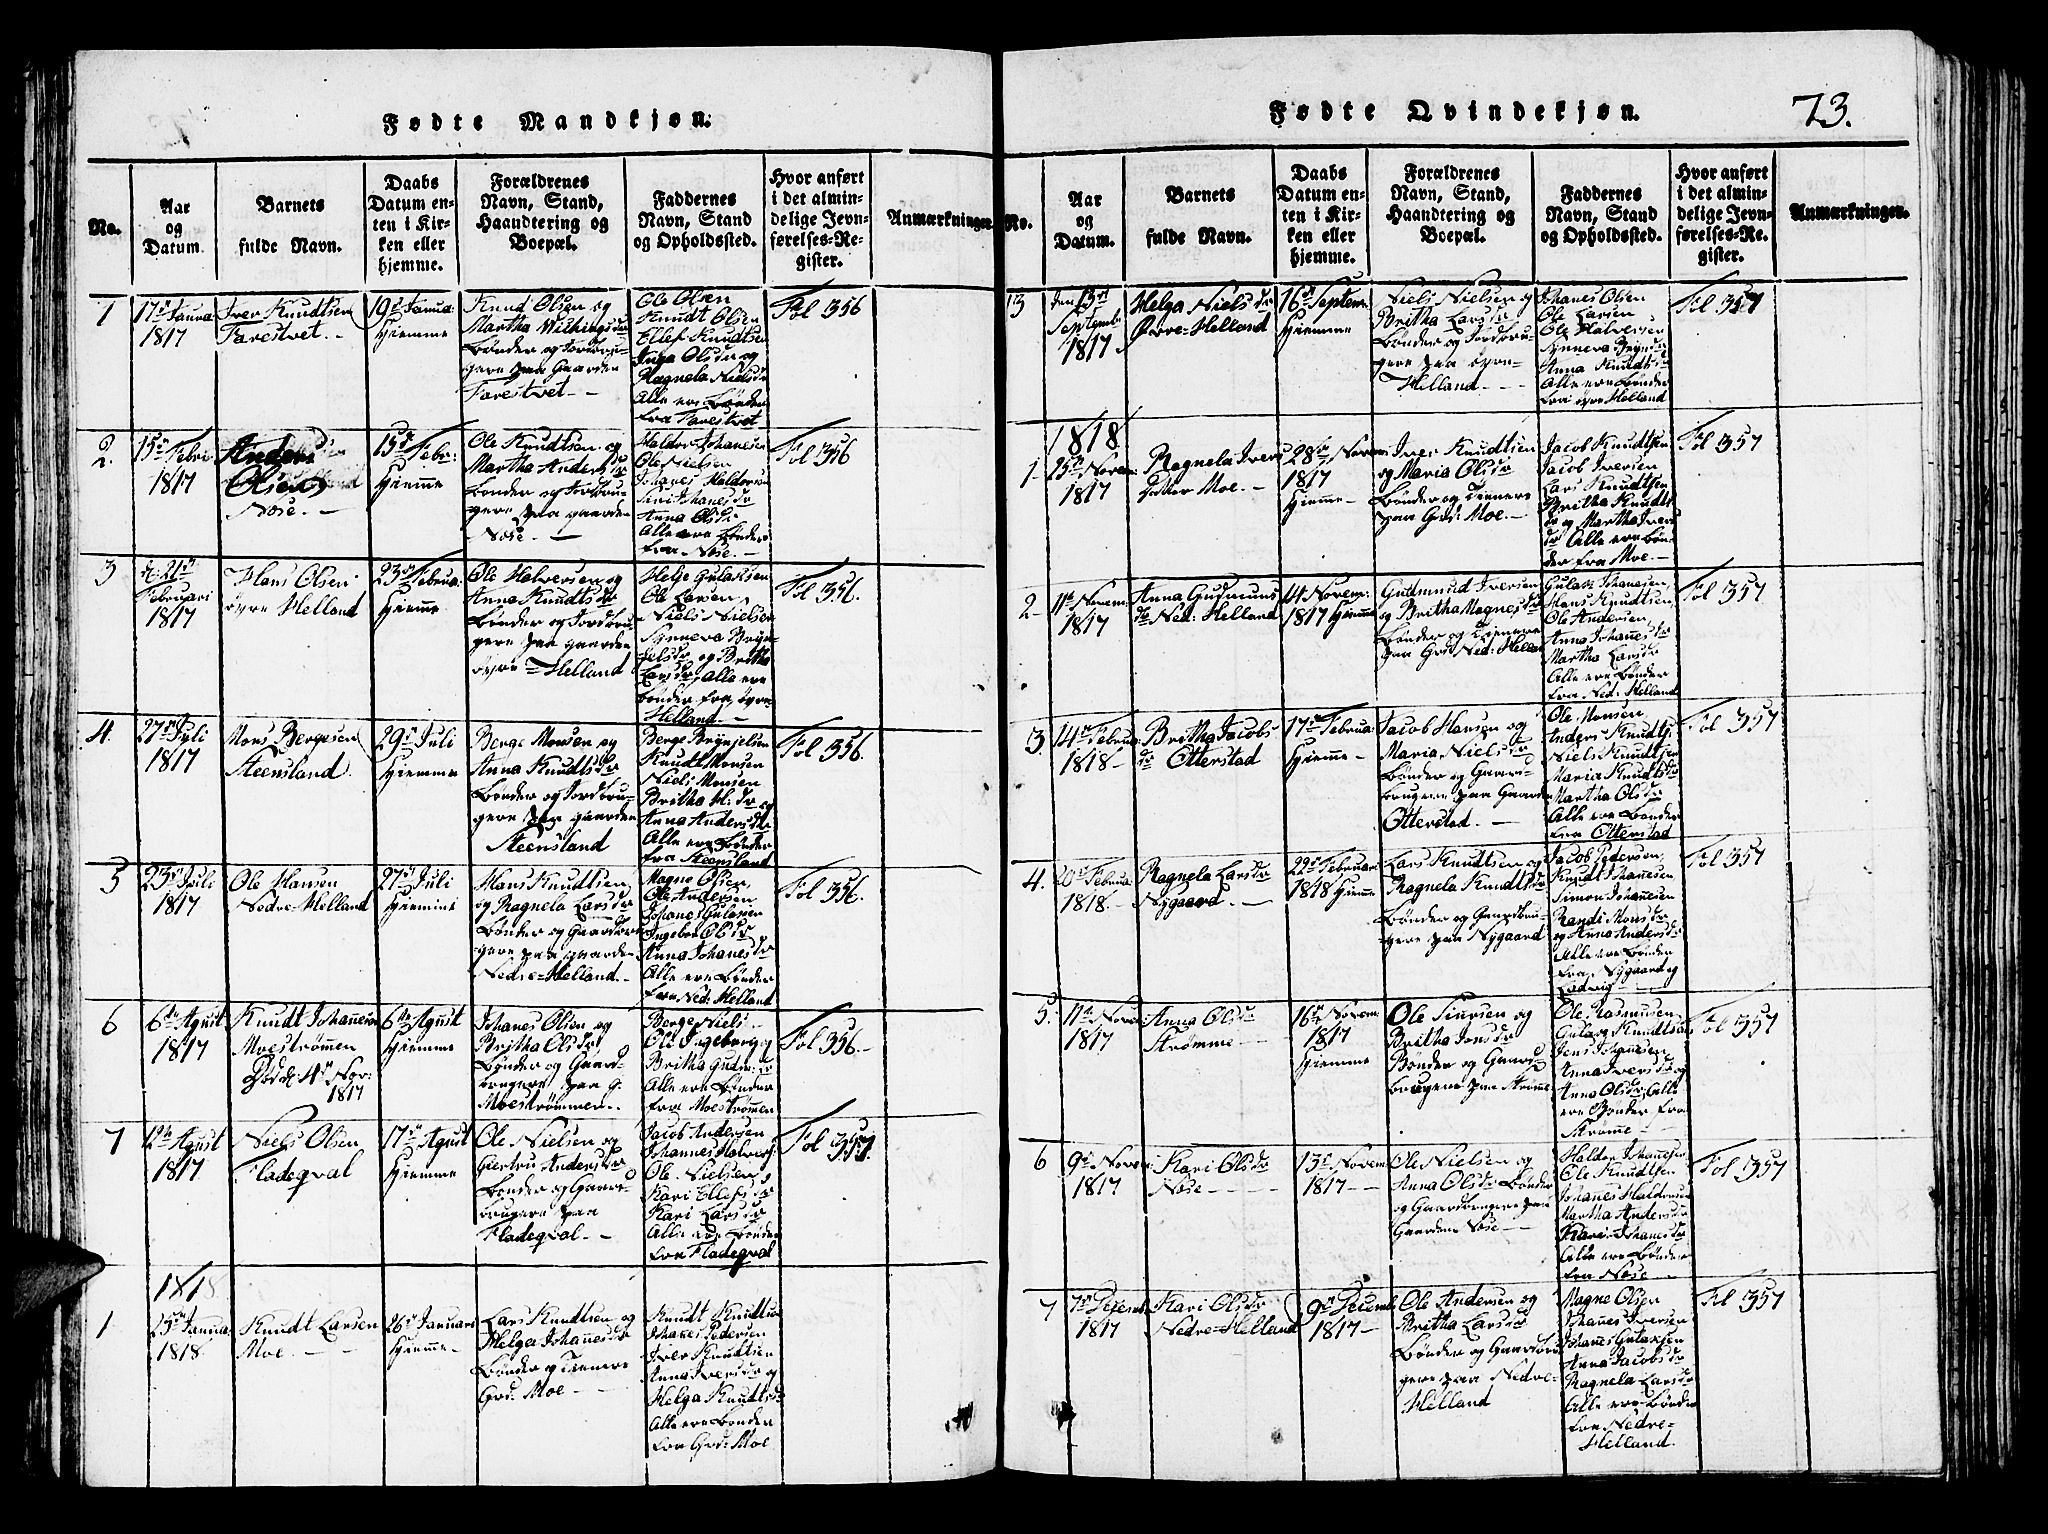 Fødte Mandkjøn.
No.
Aar
og
Datum
Barnets
fulde Navn.
Daabs
Datum en-
ten i Kir-
ken eller
hjemme.
Forældrenes
Navn, Stand,
Haandtering og
Boepæl.
Faddernes
Navn, Stand
og Opholdssted.
Hvor anført
i det almin-
delige Jevn-
førelses-Re-
gister.
Anmærkninger.
1
17de Janua
1817
Iver Knudtsen
Farestvet.
19de Janua
Hiemme
Knud Olsen og
Martha Wichingsdr
Bønder og Jordbru-
gere paa Gaarden
Farestvet
Ole Olsen
Knudt Olsen
Ellef Knudtsen
Inga Olsdr og
Ragnela Nielsdr
Alle ere Bønder
fra Farestvet
Fol 356
2.
15de Febri
1817
Anders
Olsen
Nose.
15de Febr:
Hiemme
Ole Knudtsen og
Martha Andersdr
Bønder og Jordbru-
gere paa gaarden
Nose.
Haldor Johanesen
Ole Nielsen
Johanes Haldorsen
Kari Johanesdr
Anna Olsdr
Alle ere Bønder
fra Nose.
Fol 356
3
d: 21de
Februari
1817
Hans Olsen
øvre Helland
23de Februa
Hiemme
Ole Halversen og
Anna Knudtsdr
Bønder og Jordbru-
gere paa gaarden
øvre Helland
Helje Gulaksen
Ole Larsen
Niels Nielsen
Synneva Bryn-
jelsdr og Britha
Larsdr, Alle ere
bønder fra øvre
Helland.
Fol 356.
4.
27de Juli
1817
Mons Bergesen
Steensland.
29de Juli
Hiemme
Berge Monsen og
Anna Knudtsdr
Bønder og Jordbru-
gere paa gaarden
Steensland
Berge Brynjelsen
Knudt Monsen
Niels Monsen
Britha H: dr og
Anna Andersdr
Alle ere Bønder
fra Steensland
Fol 356.
5
23de Juli
1817
Ole Hansen
Nedre-Helland
27de Juli
Hiemme
Hans Knudtsen,
og Ragnela Larsdr
Bønder og Gaardbru-
gere paa gaarden
Nedre-Helland.
Magne Olsen,
Ole Andersen
Johanes Gulaksen
Ingebor Olsdr
Anna Johanesdr
Alle ere Bønder
fra Ned: Helland
Fol 356.
6
6te Agust
1817
Knudt Johannesen
Moestrømmen
Død d: 4de Nov:
1817
6te Agust
Hiemme
Johanes Olsen og
Britha Olsdr
Bønder og Gaard-
brugere paa g:
Moestrømmen.
Berge Niels
Ole Ingeberg og
Britha Gudm: dr
Alle ere Bønder
fra Moestrømmen
Fol 356.
7
12te Agust
1817
Niels Olsen
Fladeqval
17de Agust
Hiemme
Ole Nielsen og
Giertru Andersdr
Bønder og Gaard-
brugere paa
Fladeqval.
Jacob Andersen
Johannes Halvers:
Ole Nielsen og
Kari Ellefsdr
Kari Larsdr
Alle ere Bønder
fra Fladeqval
Fol 357.
1818
1
23de Janua
1818
Knudt Larsen
Moe.
26de Januari
Hiemme
Lars Knudtsen og
Helga Johanesdr
Bønder og Tienere
Grd: Moe
Knudt Knudtsen
Johanes Pedersen
Iver Knudtsen
Anna Iversdr og
Helga Knudtsdr
Alle ere Bønder
fra Grd: Moe
Fødte Qvindekjøn.
73.
No.
Aar
og
Datum.
Barnets
fulde Navn.
Daabs
Datum en-
ten i Kir-
ken eller
hjemme.
Forældrenes
Navn, Stand,
Haandtering og
Boepæl.
Faddernes
Navn, Stand
og Opholdssted.
Hvor anført
i det almin-
delige Jevn-
førelses-Re-
gister.
Anmærkninger.
13
den 13de
Septembr
1817
Helga Nielsdr
Øvre-Helland
16de Septem:
Hiemme
Niels Nielsen og
Britha Larsdr
Bønder og Jordbru-
gere paa øvre-
Helland.
Johanes Olsen
Ole Larsen
Ole Halversen
Synneva Brynjdr
Anna Knudtsdr
Alle ere Bønder
fra øvre Helland
Fol 357
1818
1-
25de Novem:
1817
Ragnela Ivers
Dotter Moe.
28de Novem:
1817
Hiemme
Iver Knudtsen
og Maria Olsdr
Bønder og Tienere
paa Grd: Moe.
Jacob Knudtsen
Jacob Iversen
Lars Knudtsen
Britha Knudts
dr og Martha Ivers
dr Alle ere Bøn-
der fra Moe.
Fol 357
2-
11te Novem:
1817
Anna Gudmuns
dr Ned: Helland
14 Novem:
1817 Hiemme
Gudmund Iversen
og Britha Magnesdr
Bønder og Tienere
paa Grd Ned: Helland
Gulak Johanesen,
Hans Knudtsen,
Ole Andersen,
Anna Johanesdr
Martha Larsdr
Alle ere Bønder
fra Ned: Helland
Fol 357
3
14de Februa:
1818
Britha Jacobs
dr Otterstad
17de Februa:
Hiemme
Jacob Hansen og
Maria Nielsdr
Bønder og Gaard-
brugere paa Gaarden
Otterstad.
Ole Monsen
Anders Knudts:
Niels Knudtsen
Maria Knudtsdr
Martha Olsdr
Alle ere Bønder
fra Otterstad
Fol 357
4.
20de Februa
1818.
Ragnela Larsdr
Nygaard.
22de Februar
1818 Hiemme
Lars Knudtsen og
Ragnela Knudtsdr
Bønder og Gaardbru-
gere paa Nygaard
Jacob Pedersen,
Knudt Johanesen
Simon Johanesen
Randi Monsdr
og Anna Andersdr
Alle ere Bønder
fra Nygaard og
Ladvig
Fol 357
5.
11te Novem:
1817
Anna Olsdr
Strømme
16de Novem:
1817
Hiemme
Ole Siursen og
Britha Jonsdr
Bønder og Gaard-
brugere paa Strømme
Ole Rasmusen
Gulag Knudtsen
Jens Johanesen
Anna Iversdr og
Anna Olsdr, Alle
ere Bønder fra
Strømme
Fol 357
6
9de Novem:
1817
Kari Olsdr
Nose
13de Novem:
1817
Ole Nielsen og
Anna Olsdr Bønder
og Gaardbrugere paa
Gaarden Nose
Haldor Johanesen
Ole Knudtsen
Johanes Haldorsen
Martha Andersdr
Kari Johanesdr
Alle ere Bønder
fra Nose.
Fol 357
7
7de Decemb:
1817
Kari Olsdr
Nedre-Helland
9de Decemb:
1817
Ole Andersen og
Britha Larsdr
Bønder og Gaardbru-
gere paa Nedre-
Helland
Magne Olsen
Johanes Iversen
Johanes Gulaksen
Anna Jacobsdr
Ragnela Larsdr
Alle ere Bønder
fra Nedre-
Helland.
Fol 357